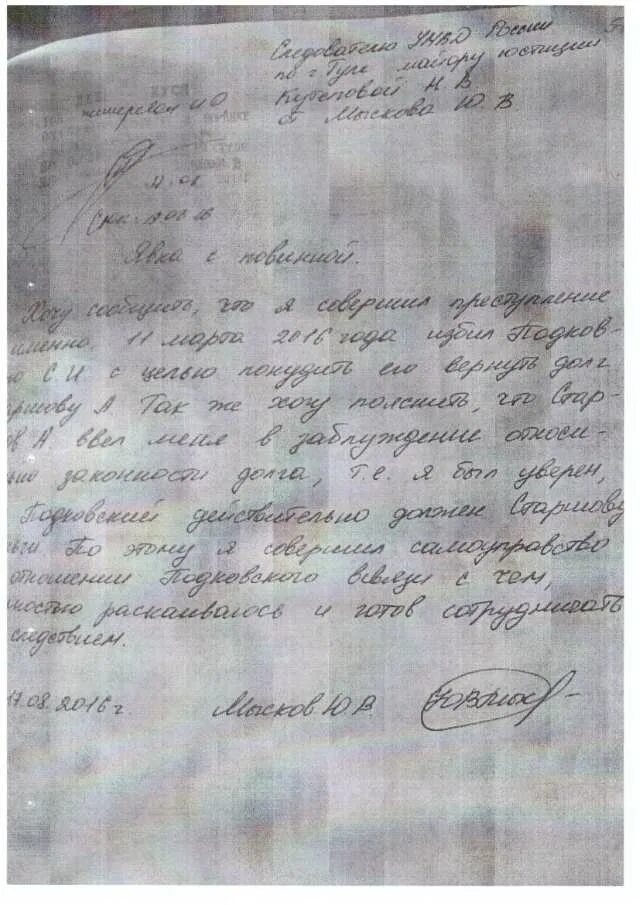 Следователю УМВД России
по г Туле майору юстиции
Кутеповой Н. В
от Мыскова Ю. В
Явка с повинной.
Хочу сообщить, что я совершил преступление
именно. 11 марта 2016 года избил Подков-
го С.И. с целью понудить его вернуть долг
аршову А Так же хочу пояснить, что Стар-
ов А. ввел меня в заблуждение относи-
но законности долга, т.е. я был уверен,
Подковский действительно должен Старшову
ьги. По этому я совершил самоуправство
отношении Подковского всвязи с чем,
ностью раскаиваюсь и готов сотрудничать
следствием.
17.08.2016 г. Мысков Ю.В.